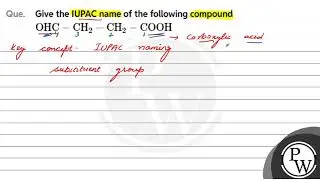 Que. Give the IUPAC name of the following compound
OHC – CH₂ – CH₂ – COOH → Carboxylic acid
4 3 2 1
Key concept - IUPAC naming
substituent group
PW